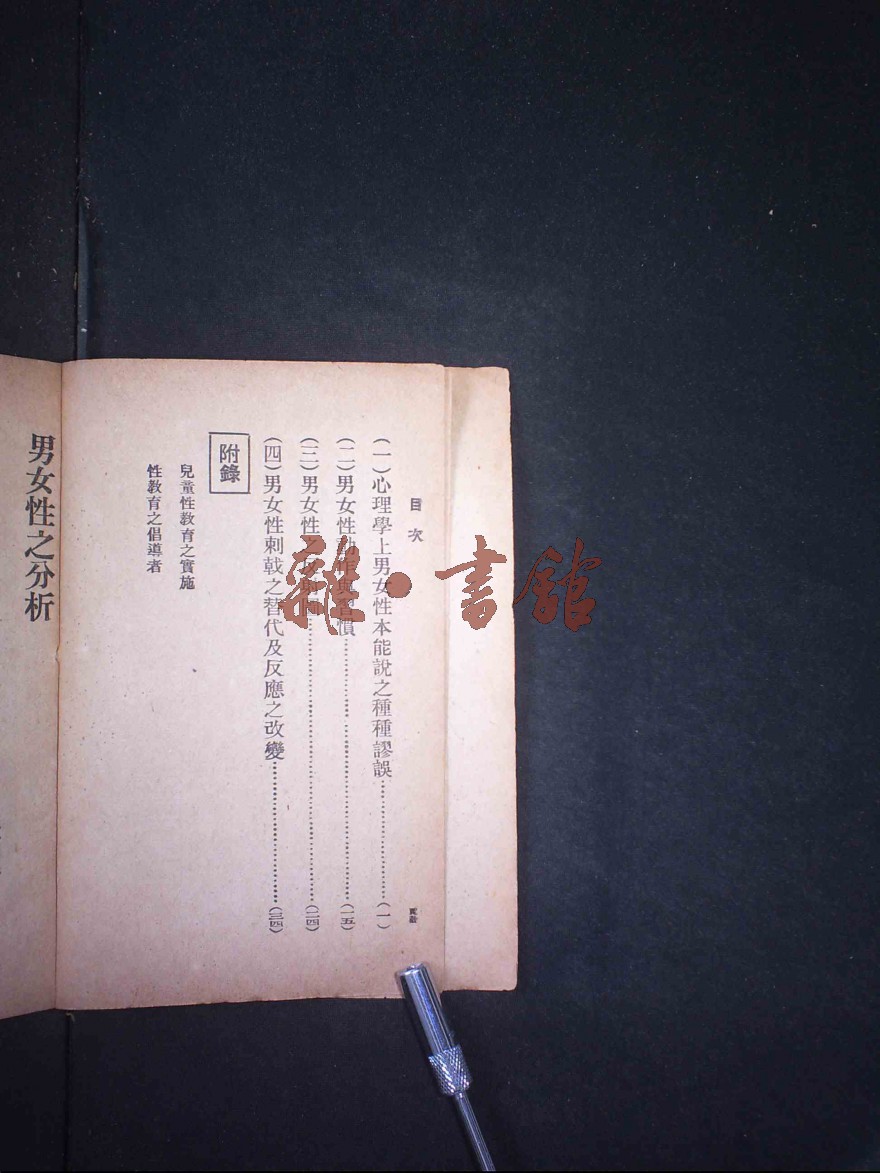 目次
頁數
(一)心理學上男女性本能說之種種謬誤……(一)
(二)男女性動作與習慣……(一五)
(三)男女性……(二四)
(四)男女性刺戟之替代及反應之改變……(三四)
附錄
兒童性教育之實施
性教育之倡導者
男女性之分析
雜·書館